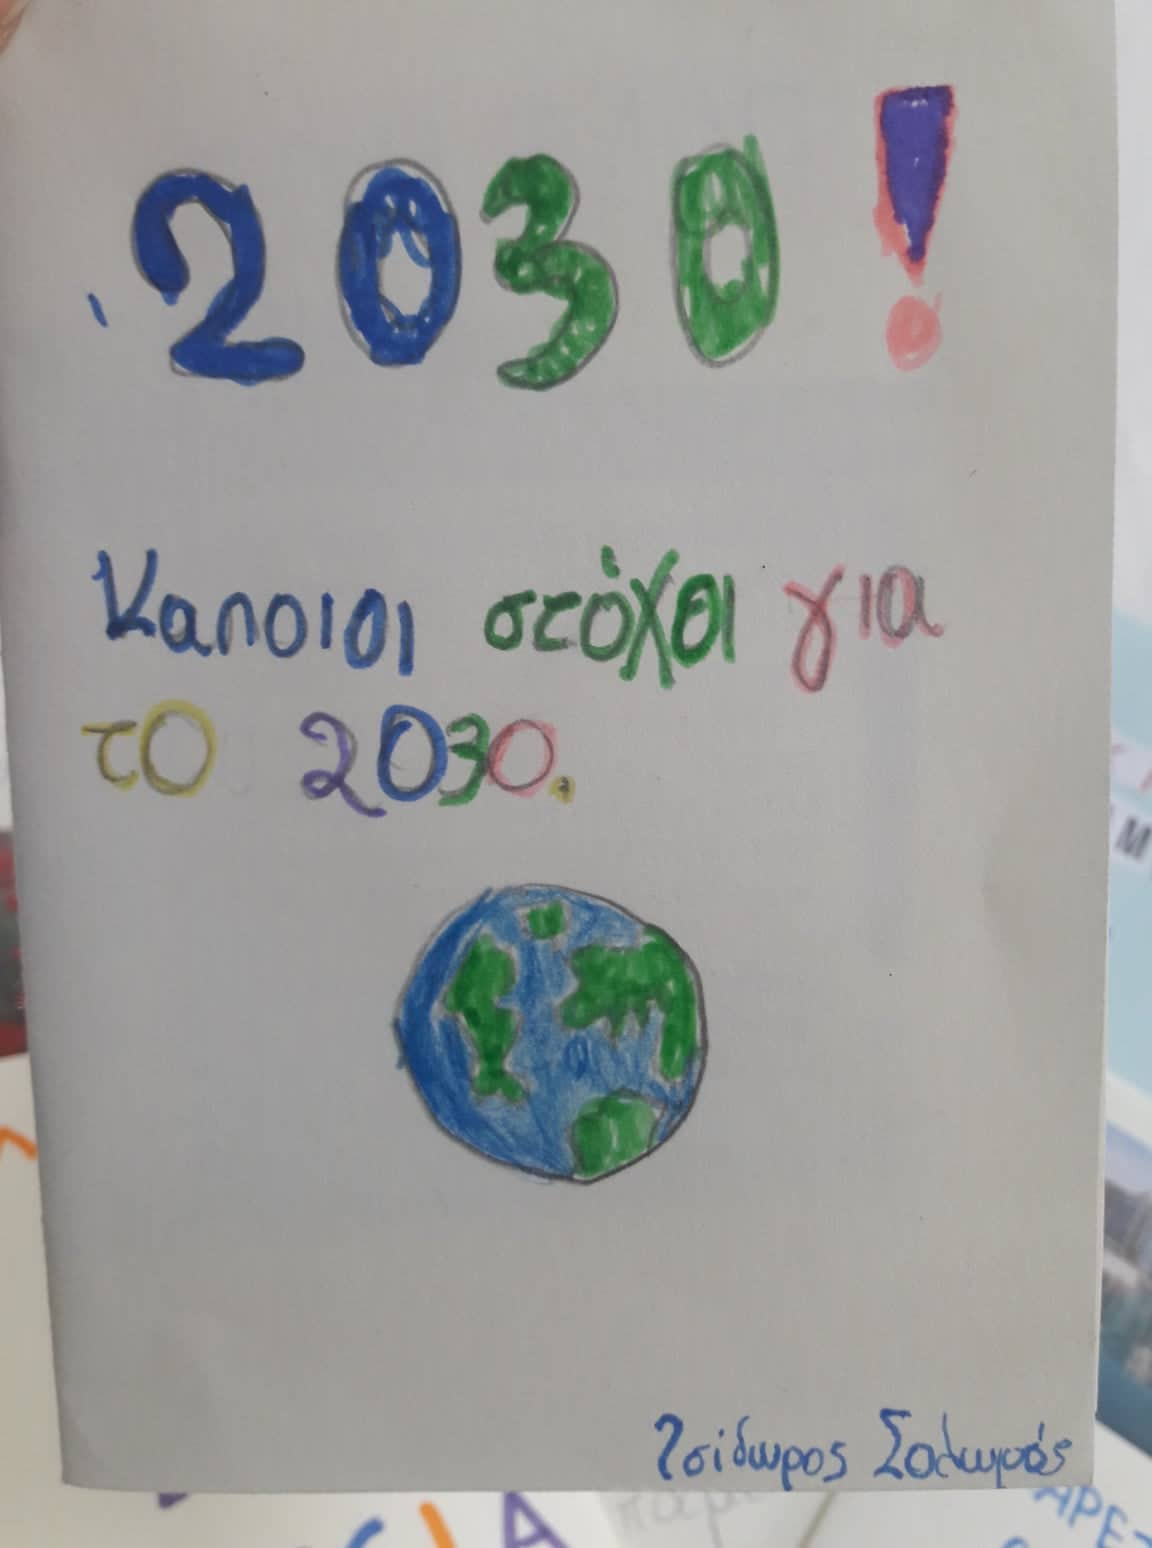 2030!
Καποιοι στόχοι για
το 2030.
Ισίδωρος Σολωμός
ΑΡΕΤ
Μ
ΙΑ